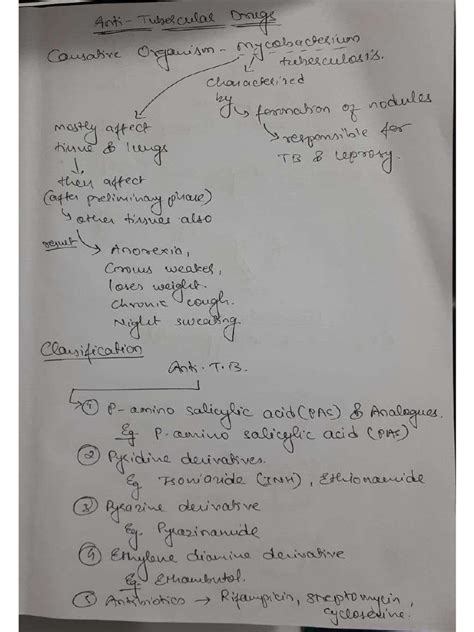 Anti-Tubercular Drugs
Causative Organism - Mycobacterium
tuberculosis.
characterised
by
formation of nodules
responsible for
TB & leprosy.
mostly affect
tissue & lungs
then affect
(after preliminary phase)
other tissues also
result
Anorexia,
Grows weaker,
loses weight.
chronic cough.
Night sweating.
Classification
Anti-T.B.
① P-amino salicylic acid (PAS) & Analogues.
Eg P-amino salicylic acid (PAS)
② Pyridine derivatives.
Eg Isoniazide (INH), Ethionamide
③ Pyrazine derivative
Eg. Pyrazinamide
④ Ethylene diamine derivative
Eg: Ethambutol.
⑤ Antibiotics → Rifampicin, Streptomycin,
cycloserine.